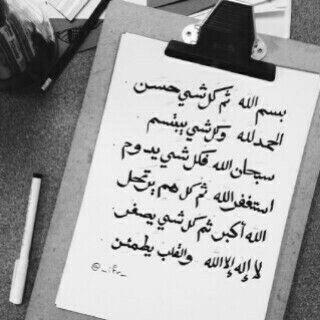 بسم الله ثم كل شي حسن
الحمد لله وكل شي يبتسم
سبحان الله فكل شي يدوم
استغفر الله ثم كل هم يرتحل
الله أكبر ثم كل شي يصغر
لا إله إلا الله والقلب يطمئن
@_ifr_